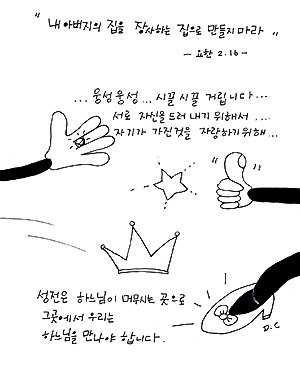 " 내 아버지의 집을 장사하는 집으로 만들지 마라 "
- 요한 2.16 -
... 웅성웅성 ... 시끌시끌 거립니다 ...
서로 자신을 드러 내기 위해서 ....
자기가 가진것을 자랑하기위해 ...
성전은 하느님이 머무시는 곳으로
그곳에서 우리는
하느님을 만나야 합니다.
D.C